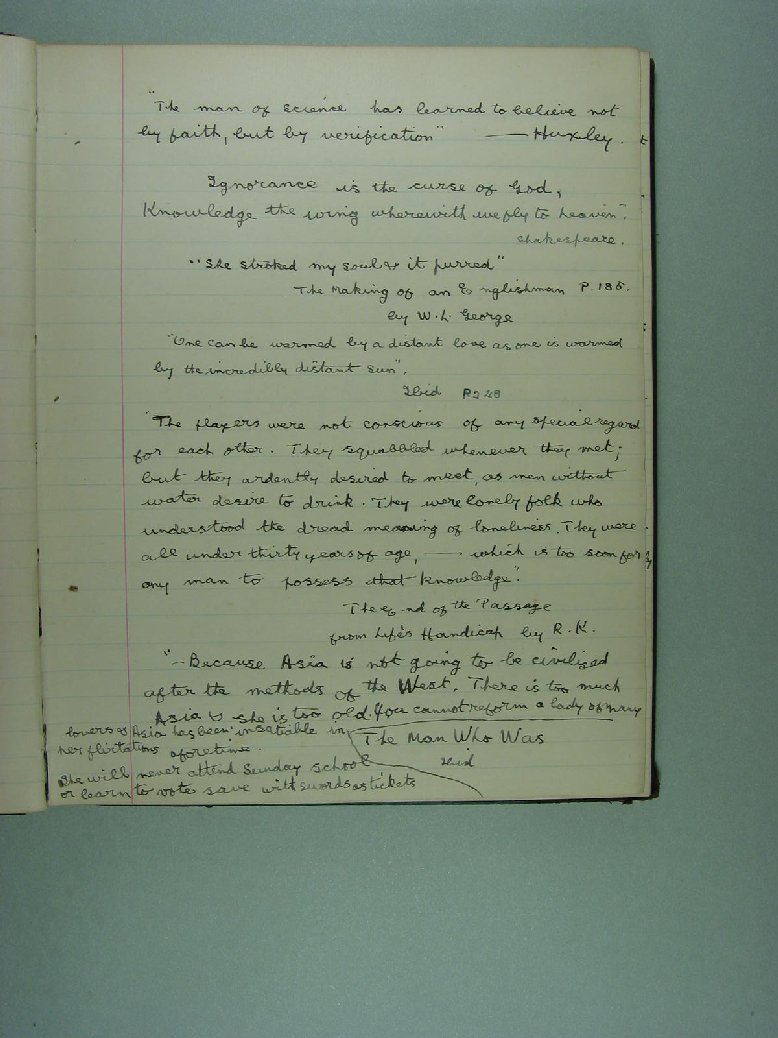 "The man of science has learned to believe not
by faith, but by verification" — Huxley.
Ignorance is the curse of God,
Knowledge the wing wherewith we fly to heaven".
Shakespeare.
"She stroked my soul & it purred"
The Making of an Englishman P. 185.
by W. L. George
"One can be warmed by a distant love as one is warmed
by the incredibly distant sun".
Ibid P248
"The players were not conscious of any special regard
for each other. They squabbled whenever they met;
but they ardently desired to meet, as men without
water desire to drink. They were lonely folk who
understood the dread meaning of loneliness. They were
all under thirty years of age, — which is too soon for
any man to possess that knowledge".
The End of the Passage
from Life's Handicap by R. K.
"-- Because Asia is not going to be civilised
after the methods of the West. There is too much
Asia & she is too old. You cannot reform a lady of many
lovers & Asia has been insatiable in
her flirtations aforetime.
She will never attend Sunday school
or learn to vote save with swords as tickets
The Man Who Was
Ibid